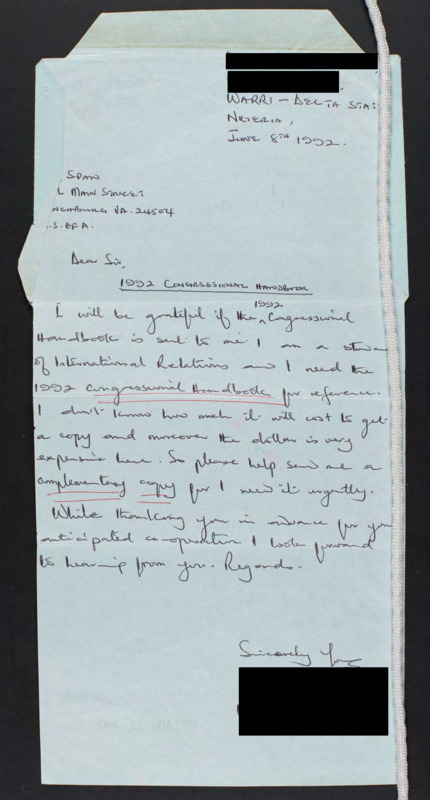 WARRI - DELTA STA
NIGERIA,
JUNE 8TH 1992.
SPAN
MAIN STREET
NCHBURG VA. 24504
.S. OF A.
Dear Sir,
1992 CONGRESSIONAL HANDBOOK
I will be grateful if the 1992 Congressional
Handbook is sent to me. I am a
of International Relations and I need the
1992 Congressional Handbook for reference.
I don't know how much it will cost to get
a copy and moreover the dollar is very
expensive here. So please help send me a
complementary copy for I need it urgently.
While thanking you in advance for your
anticipated co-operation I look forward
to hearing from you. Regards.
Sincerely Yours